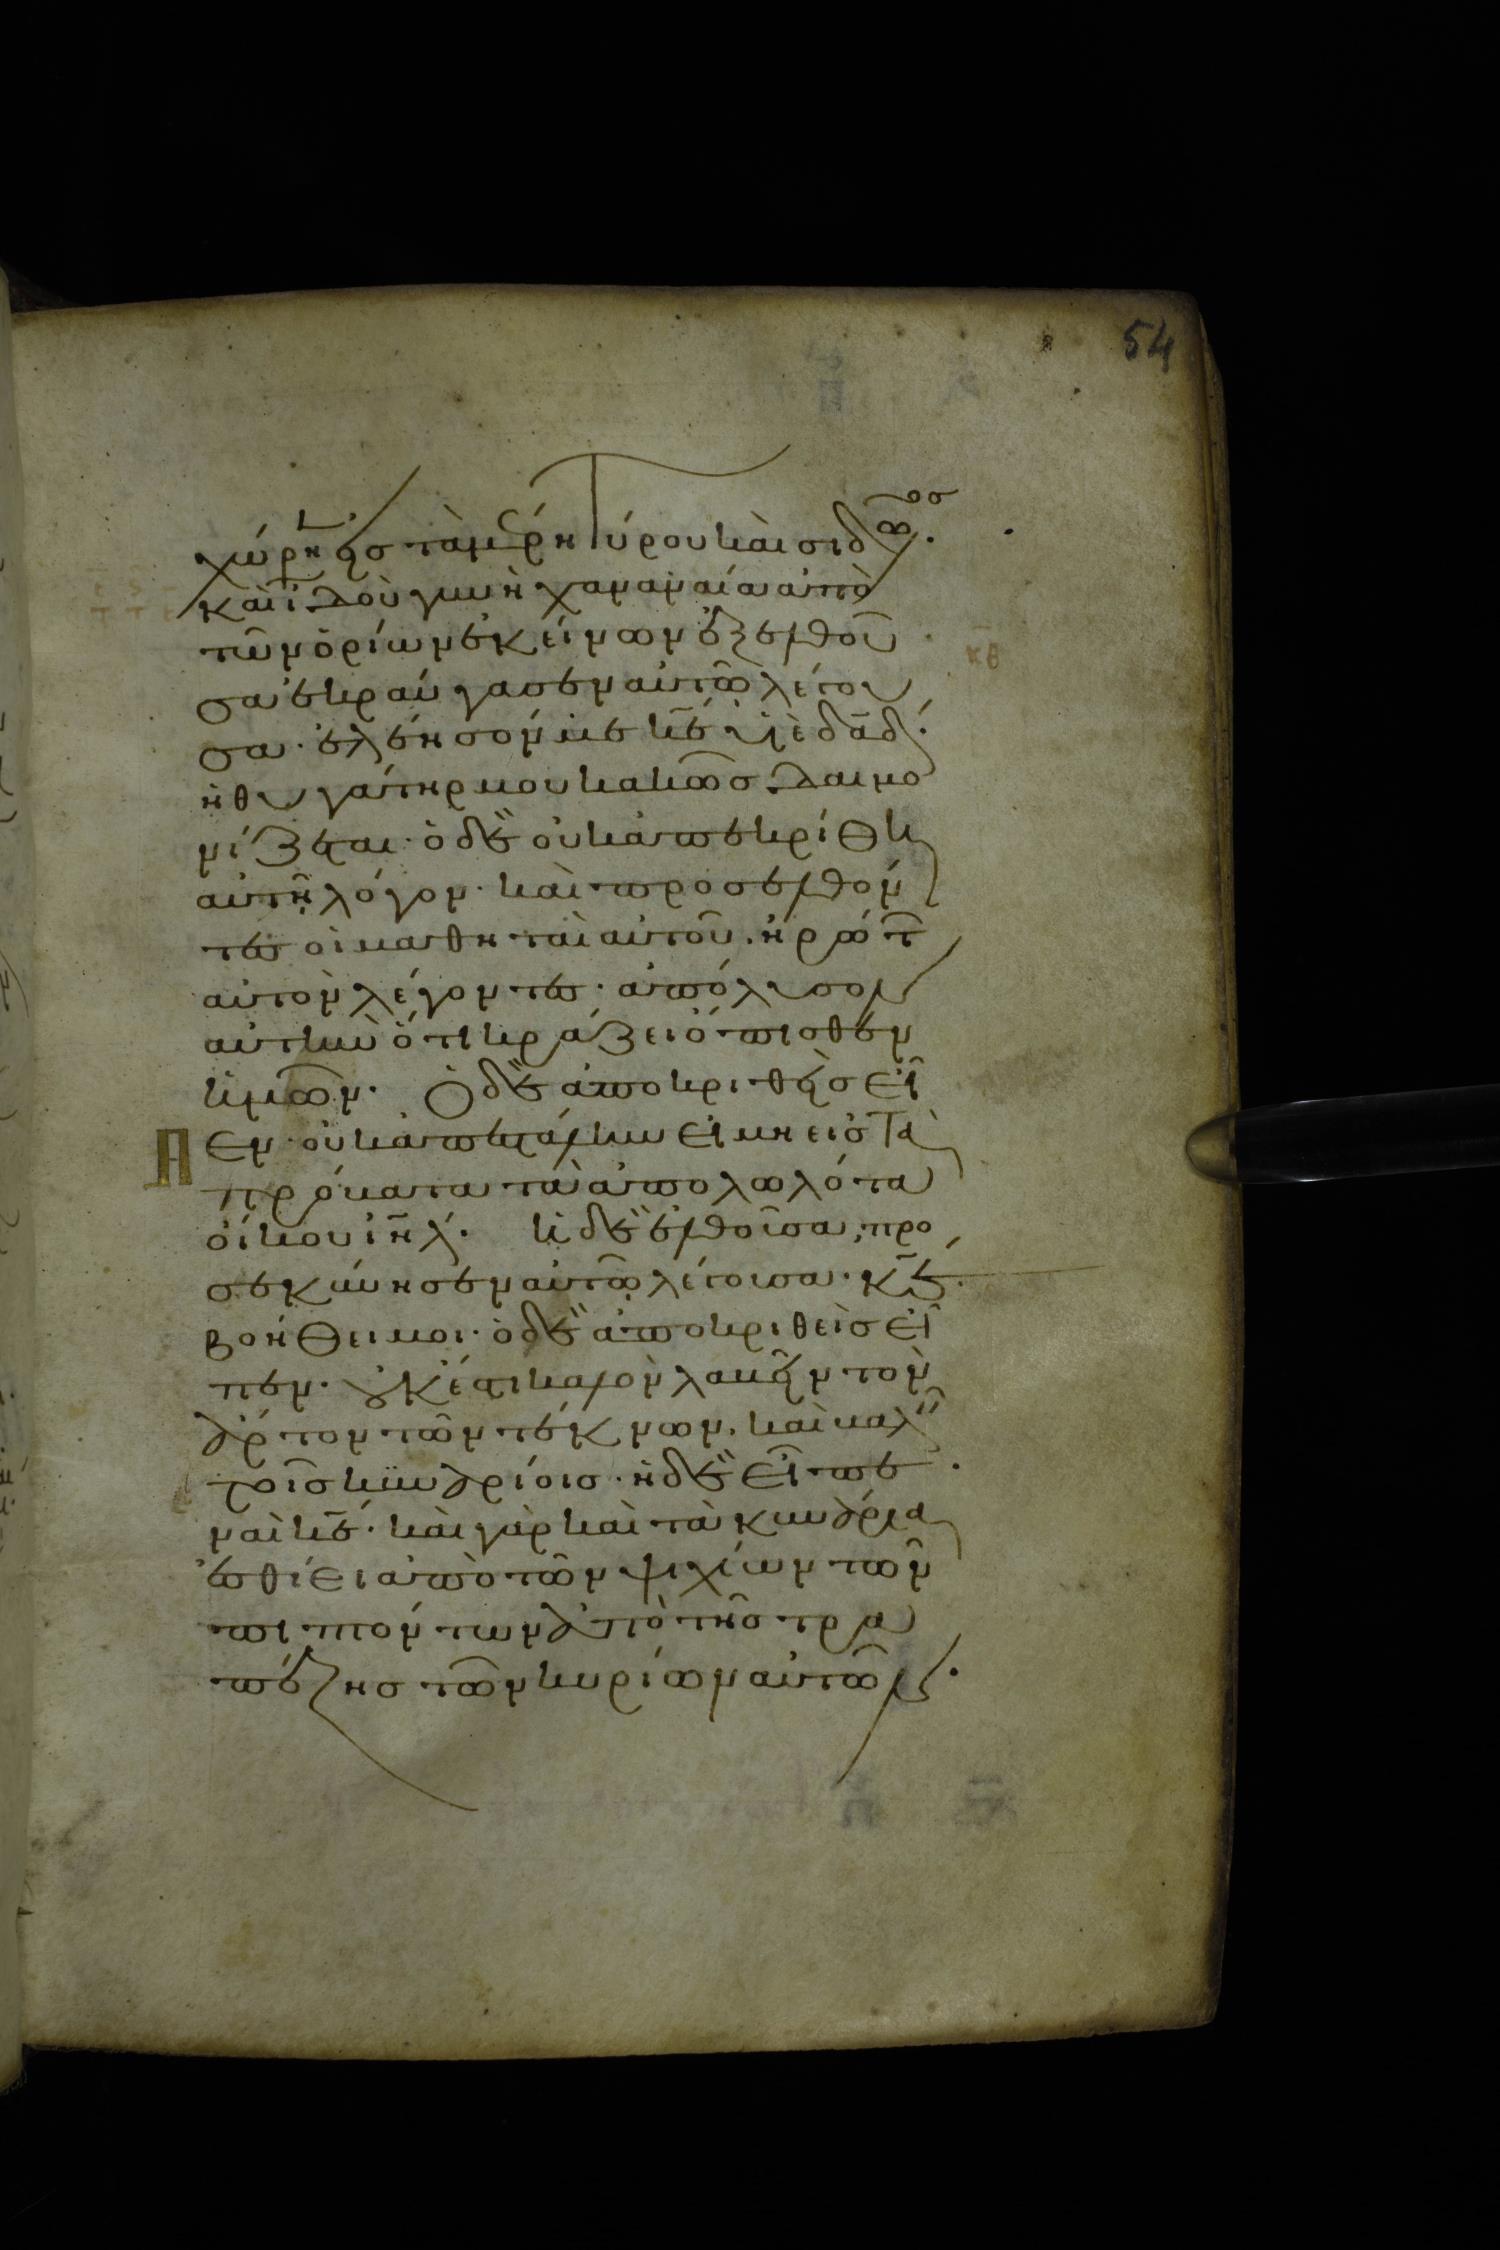 54
χώρησεν εἰς τὰ μέρη τύρου καὶ σιδῶνος.
καὶ ἰδοὺ γυνὴ χαναναία ἀπὸ
τῶν ὁρίων ἐκείνων ἐξελθοῦ
σα ἐκραύγασεν αὐτῶ λέγου
σα· ἐλέησόν με κε̄ υἱὲ δᾱδ·
ἡ θυγάτηρ μου κακῶς δαιμο
νίζεται· ὁ δὲ οὐκ ἀπεκρίθη
αὐτῆ λόγον· καὶ προσελθόν
τες οἱ μαθηταὶ αὐτοῦ. ἠρώτ
αὐτὸν λέγοντες· ἀπόλυσον
αὐτὴν ὅτι κράζει ὄπισθεν
ἡμῶν. Ὁ δὲ ἀποκριθεὶς εἶ
Π εν· οὐκ ἀπεστάλην εἰ μὴ εἰς τὰ
πρόβατα τὰ ἀπολωλότα
οἴκου ἰη̄λ. ἡ δὲ ἐλθοῦσα, προ
σεκύνησεν αὐτῶ λέγουσα· κε̄
βοήθει μοι· ὁ δὲ ἀποκριθεὶς εἶ
πεν. οὐκ ἔστι καλὸν λαβεῖν τὸν
ἄρτον τῶν τέκνων. καὶ βαλεῖν
τοῖς κυναρίοις· ἡ δὲ εἶπε.
ναὶ κε̄. καὶ γὰρ καὶ τὰ κυνάρια
ἐσθίει ἀπὸ τῶν ψιχίων τῶν
πιπτόντων ἀπὸ τῆς τρα
πέζης τῶν κυρίων αὐτῶν.
κθ